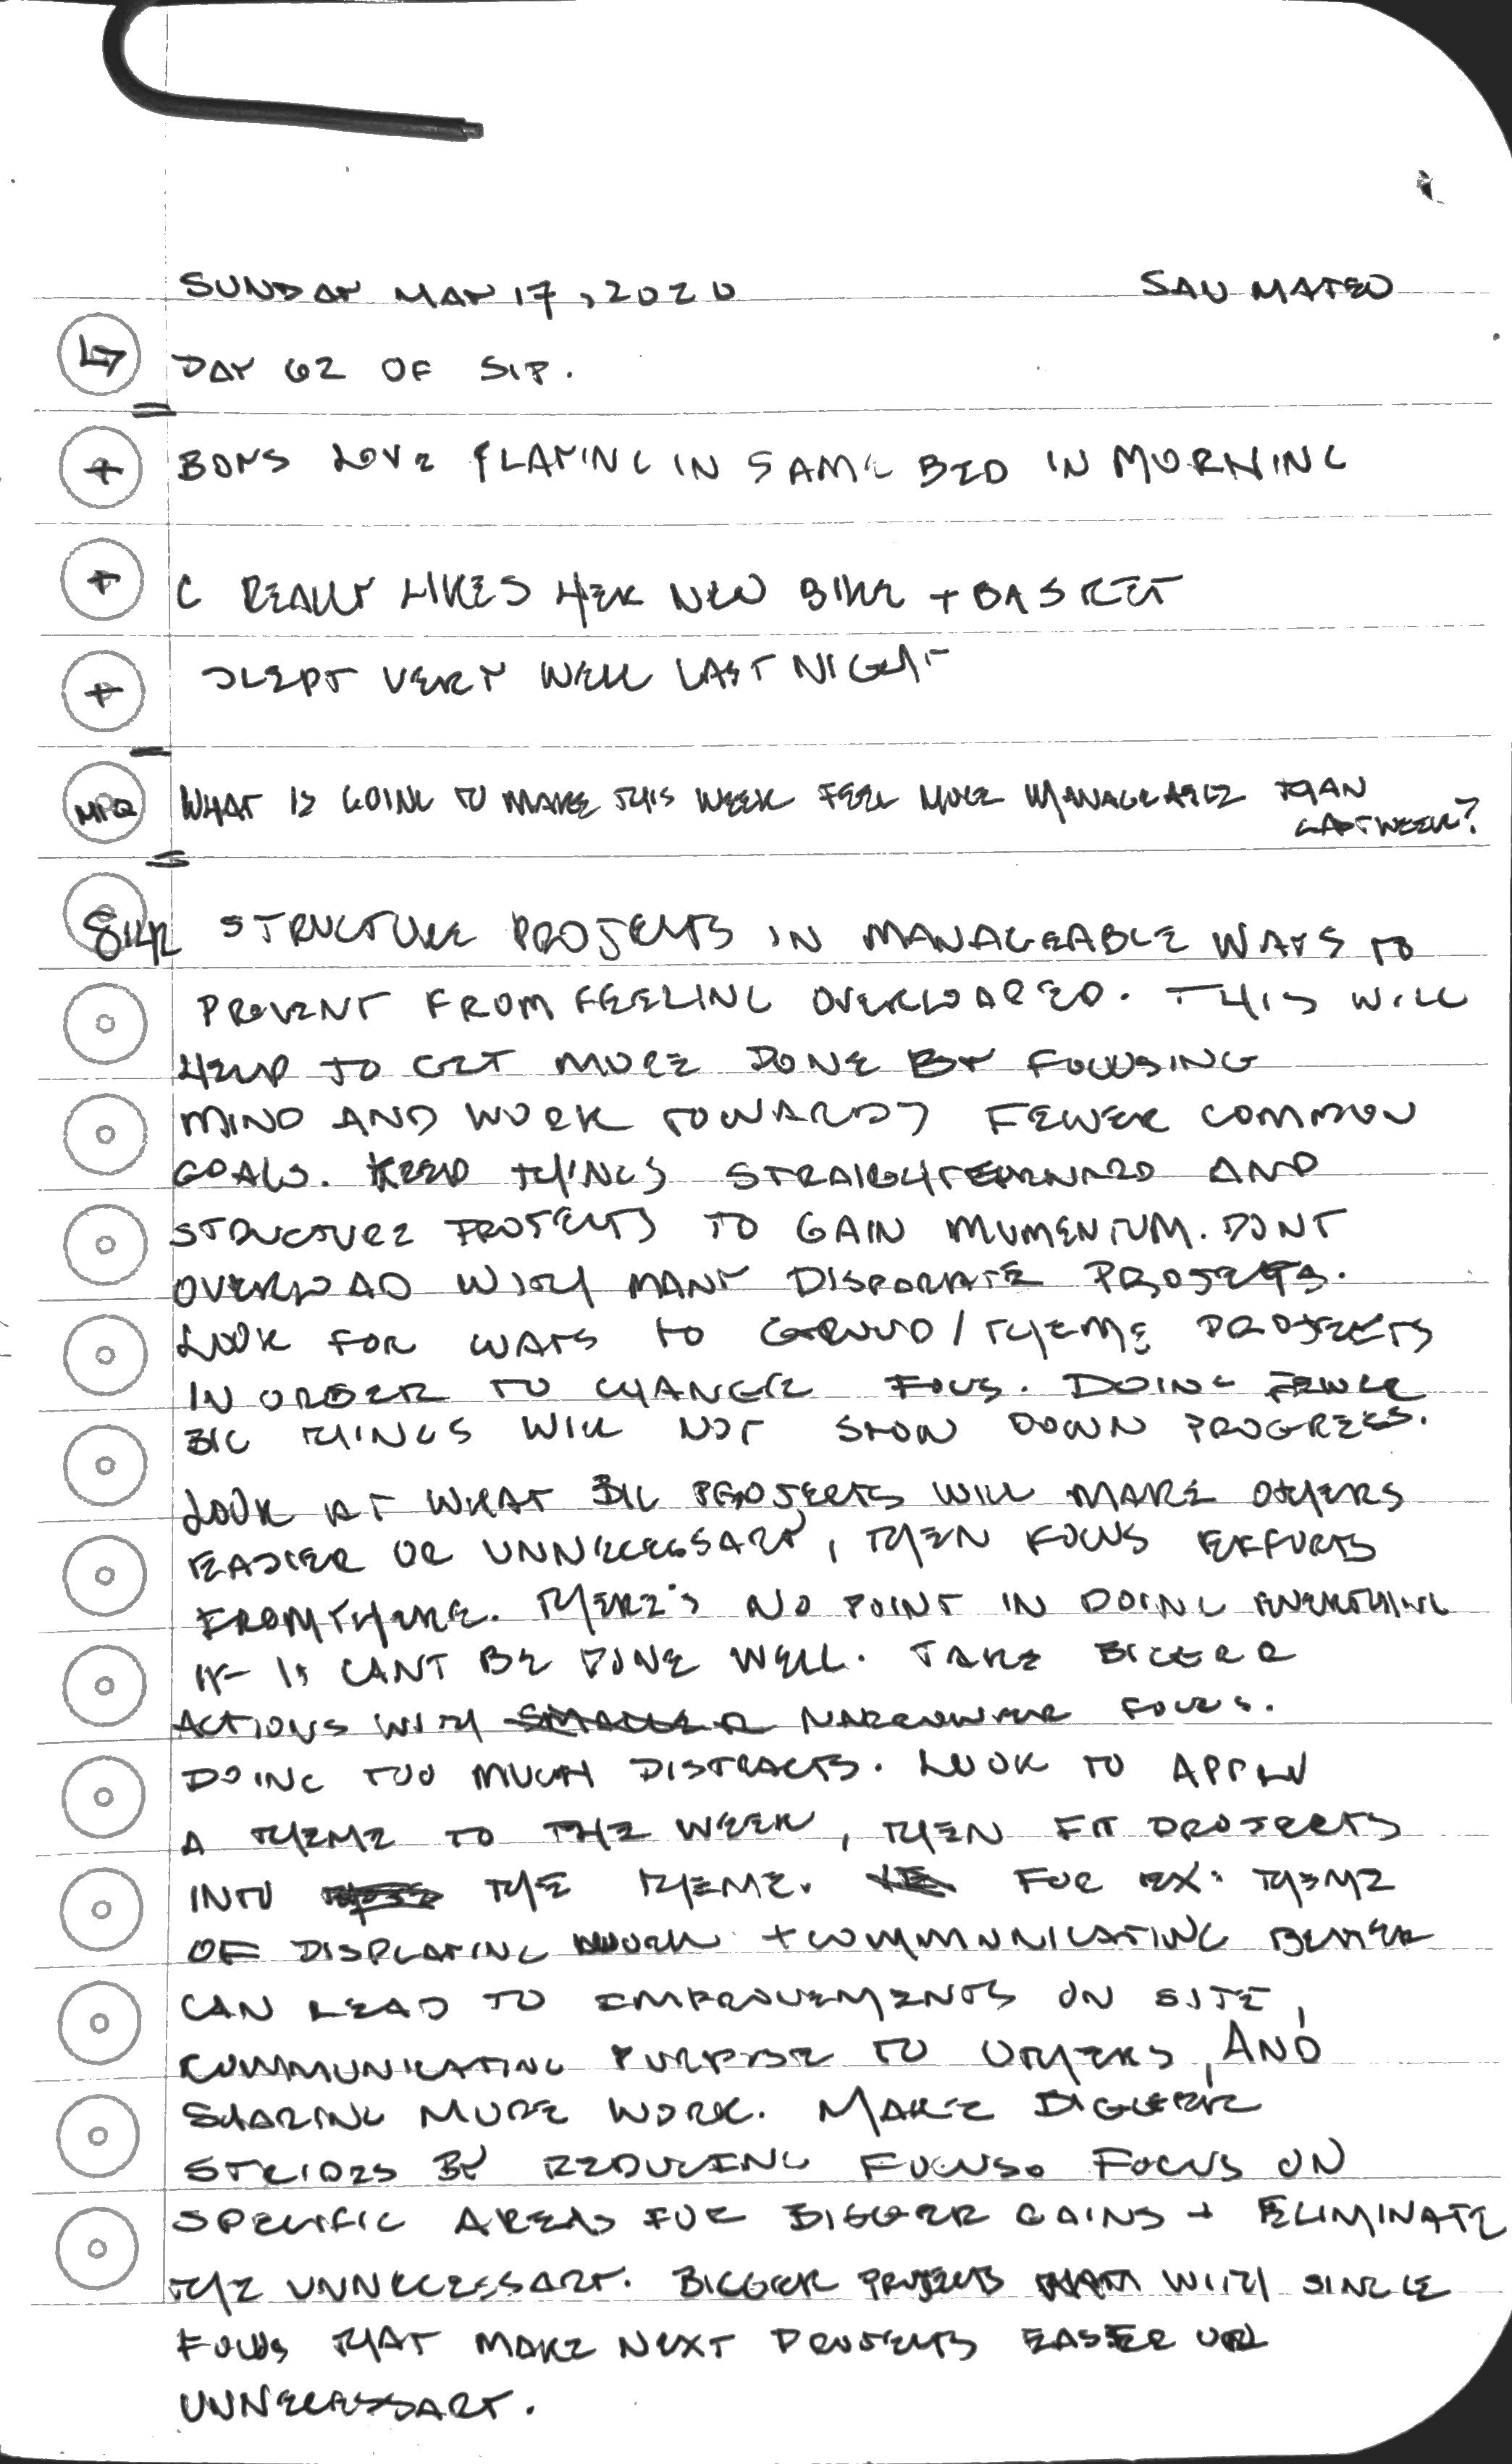 SUNDAY MAY 17, 2020 SAN MATEO
DAY 62 OF SIP.
+ BOYS LOVE PLAYING IN SAME BED IN MORNING
+ C REALLY LIKES HER NEW BIKE + BASKET
+ SLEPT VERY WELL LAST NIGHT
MIQ WHAT IS GOING TO MAKE THIS WEEK FEEL MORE MANAGEABLE THAN
LAST WEEK?
STRUCTURE PROJECTS IN MANAGEABLE WAYS TO
PREVENT FROM FEELING OVERLOADED. THIS WILL
HELP TO GET MORE DONE BY FOCUSING
MIND AND WORK TOWARDS FEWER COMMON
GOALS. KEEP THINGS STRAIGHTFORWARD AND
STRUCTURE PROJECTS TO GAIN MOMENTUM. DONT
OVERLOAD WITH MANY DISPARATE PROJECTS.
LOOK FOR WAYS TO GROUP/THEME PROJECTS
IN ORDER TO CHANGE FOCUS. DOING FEWER
BIG THINGS WILL NOT SLOW DOWN PROGRESS.
LOOK AT WHAT BIG PROJECTS WILL MAKE OTHERS
EASIER OR UNNECESSARY, THEN FOCUS EFFORTS
FROM THERE. THERE'S NO POINT IN DOING EVERYTHING
IF IT CANT BE DONE WELL. TAKE BIGGER
ACTIONS WITH SMALLER NARROWER FOCUS.
DOING TOO MUCH DISTRACTS. LOOK TO APPLY
A THEME TO THE WEEK, THEN FIT PROJECTS
INTO THE THEME. FOR EX: THEME
OF DISPLAYING WORK + COMMUNICATING BETTER
CAN LEAD TO IMPROVEMENTS ON SITE,
COMMUNICATING PURPOSE TO OTHERS, AND
SHARING MORE WORK. MAKE BIGGER
STRIDES BY REDUCING FOCUS. FOCUS ON
SPECIFIC AREAS FOR BIGGER GAINS + ELIMINATE
THE UNNECESSARY. BIGGER PROJECTS WITH SINGLE
FOCUS THAT MAKE NEXT PROJECTS EASIER OR
UNNECESSARY.